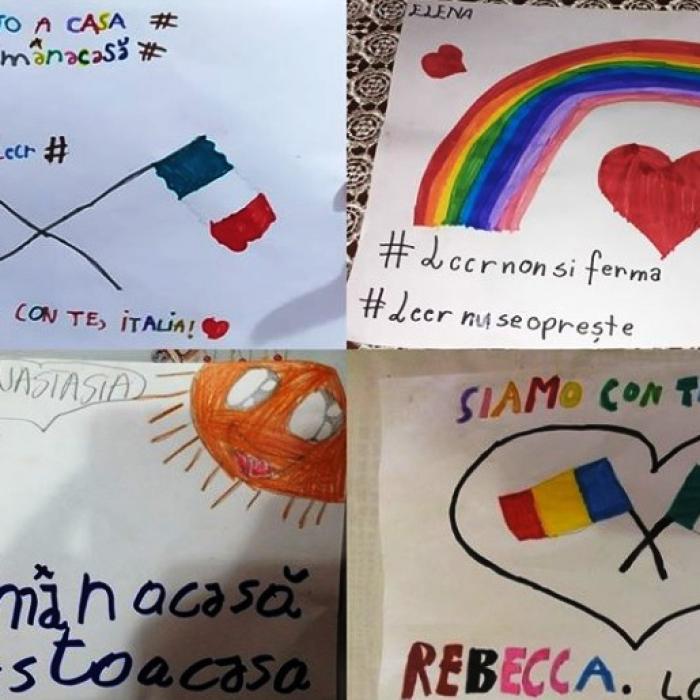 TO A CASA #
mânacasă #
Lccr #
CON TE, iTALiA!
ELENA
# Lccr non si ferma
# Lccr nu se oprește
NASTASIA
mânacasă
stoacasa
SIAMO CON T
REBECCA.